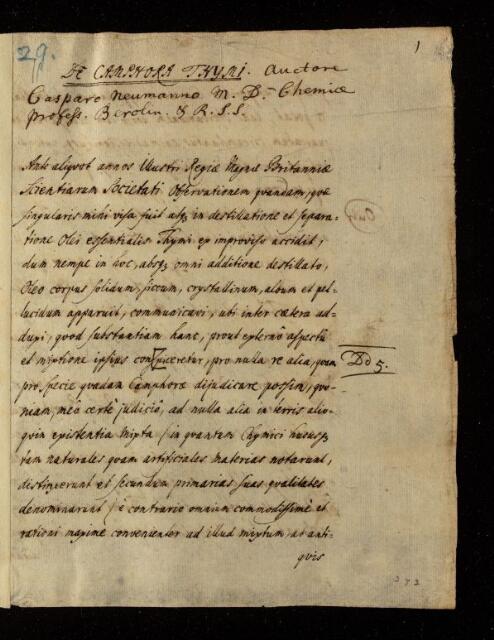 29.
1
DE CAMPHORA THYMI. Auctore
Casparo Neumanno M. D. Chemiæ
Profess. Berolin. & R. S. S.
Ante aliqvot annos Illustri Regiæ Magnæ Britanniæ
Scientiarum Societati Observationem qvandam, qvæ
singularis mihi visa fuit atq; in destillatione et separa-
tione Olei essentialis Thymi ex improviso accidit,
dum nempe in hoc, absq; omni additione destillato,
Oleo corpus solidum, siccum, crystallinum, album et pel-
lucidum apparuit, communicavi; ubi inter cætera ad-
duxi, qvod substantiam hanc, prout externo aspectu
et mixtione ipsius conspiceretur, pro nulla re alia, qvam
Dd 5.
pro specie qvadam Camphoræ dijudicare possim, qvo-
niam, meo certe judicio, ad nulla alia in terris alio-
qvin existentia mixta (in qvantum Chymici hucusq;
tam naturales qvam artificiales materias notarunt,
distinxerunt et secundum primarias suas qvalitates
denominarunt) è contrario omnium commodissime et
rationi maxime convenienter ad illud mixtum, at anti-
qvis